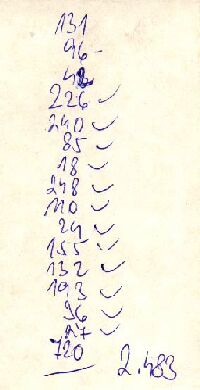 131
96 -
226 ✓
240 ✓
85 ✓
18 ✓
248 ✓
110 ✓
24 ✓
155 ✓
132 ✓
96 ✓
27 ✓
720
2.483